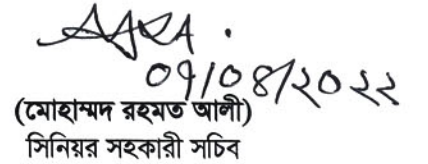 ০৭/০৪/২০২২
(মোহাম্মদ রহমত আলী)
সিনিয়র সহকারী সচিব